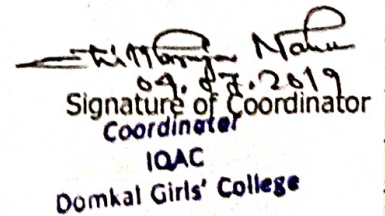 04.07.2019
Signature of Coordinator
Coordinator
IQAC
Domkal Girls' College